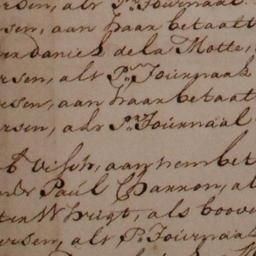 rsen, als Pr. Journaal
rsen, aan haar betaalt
Daniel de la Motte,
rsen, als Pr. Journaal
rsen, aan haar betaal
rsen, als Pr. Journaal
Visch, aan hem bet
Paul Charron, al
Wrigt, als boove
ersen, als Pr. Journaal